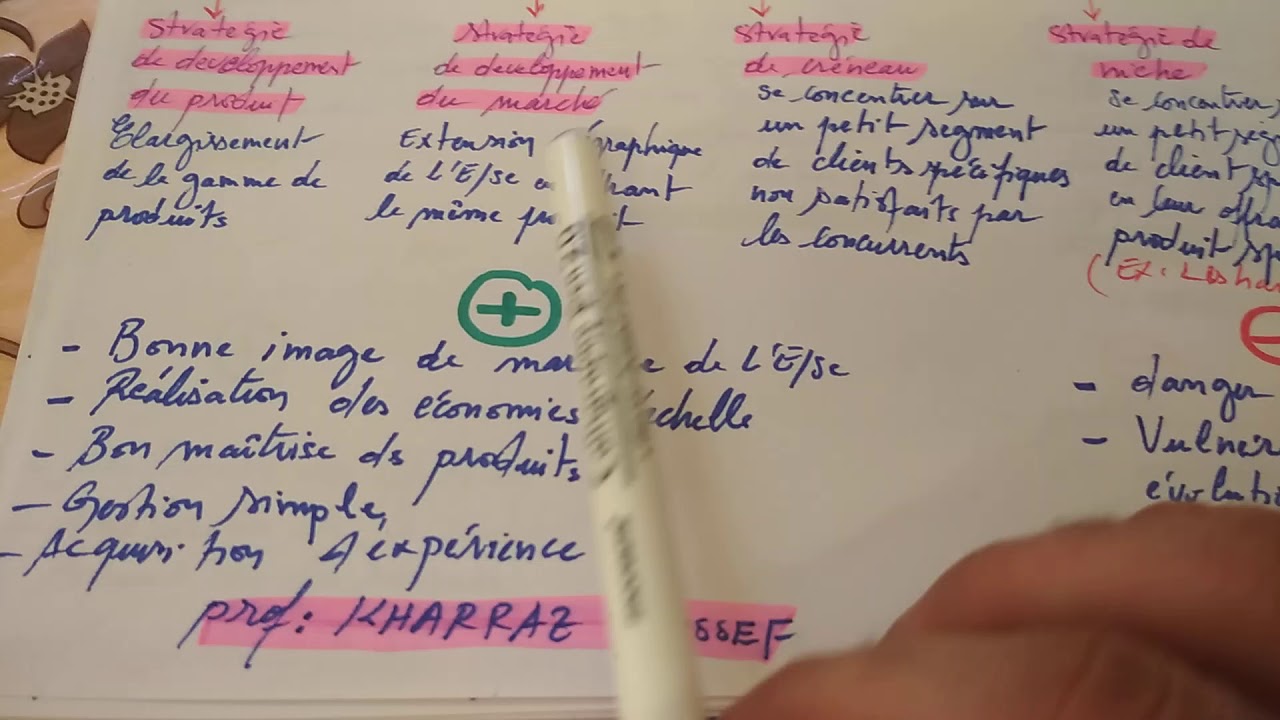 stratégie
de developpement
du produit
Elargissement
de la gamme de
produits
stratégie
de developpement
du marché
Extension
de l'E/se
le même
stratégie
de créneau
se concentrer sur
un petit segment
de clients spécifiques
non satisfaits par
les concurrents
stratégie de
niche
se concentrer
un petit
de client
en leur
produit
(Ex:
+
- Bonne image de de l'E/se
- Réalisation des économies
- Bon maîtrise ds produits
- Gestion simple,
- Acquisition d'expérience
- danger
-
prof: KHARRAZ